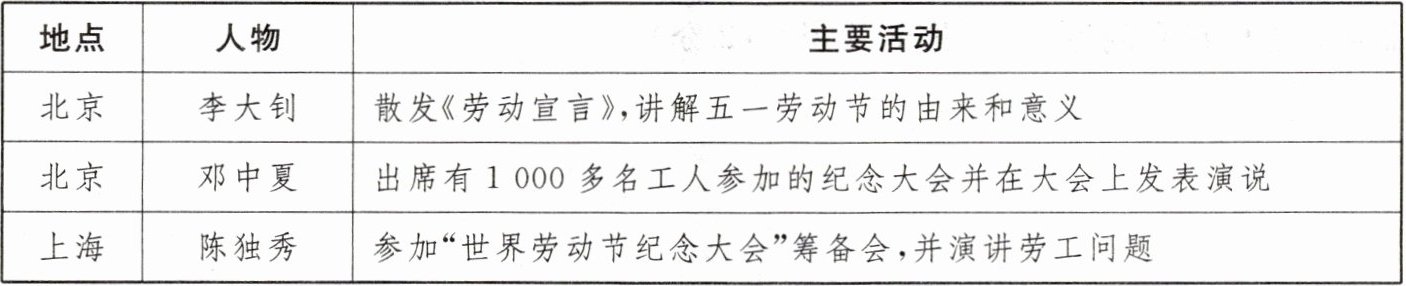 地点 人物 主要活动
北京 李大钊 散发《劳动宣言》,讲解五一劳动节的由来和意义
北京 邓中夏 出席有1 000多名工人参加的纪念大会并在大会上发表演说
上海 陈独秀 参加“世界劳动节纪念大会”筹备会,并演讲劳工问题